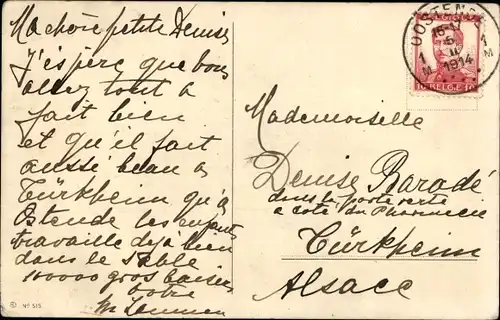 Ma chère petite Denise
J'espère que vous
allez tout a
fait bien
et qu'il fait
aussé beau a
Türkheim qu'a
Ostende les enfants
travaille dejà bien
dans le sable
100000 gros baisers
votre
OOSTENDE
1914
1
M
Mademoiselle
Denise Baradé
dans la porte verte
a coté du Pharmacie
Türkheim
Alsace
Nº 515